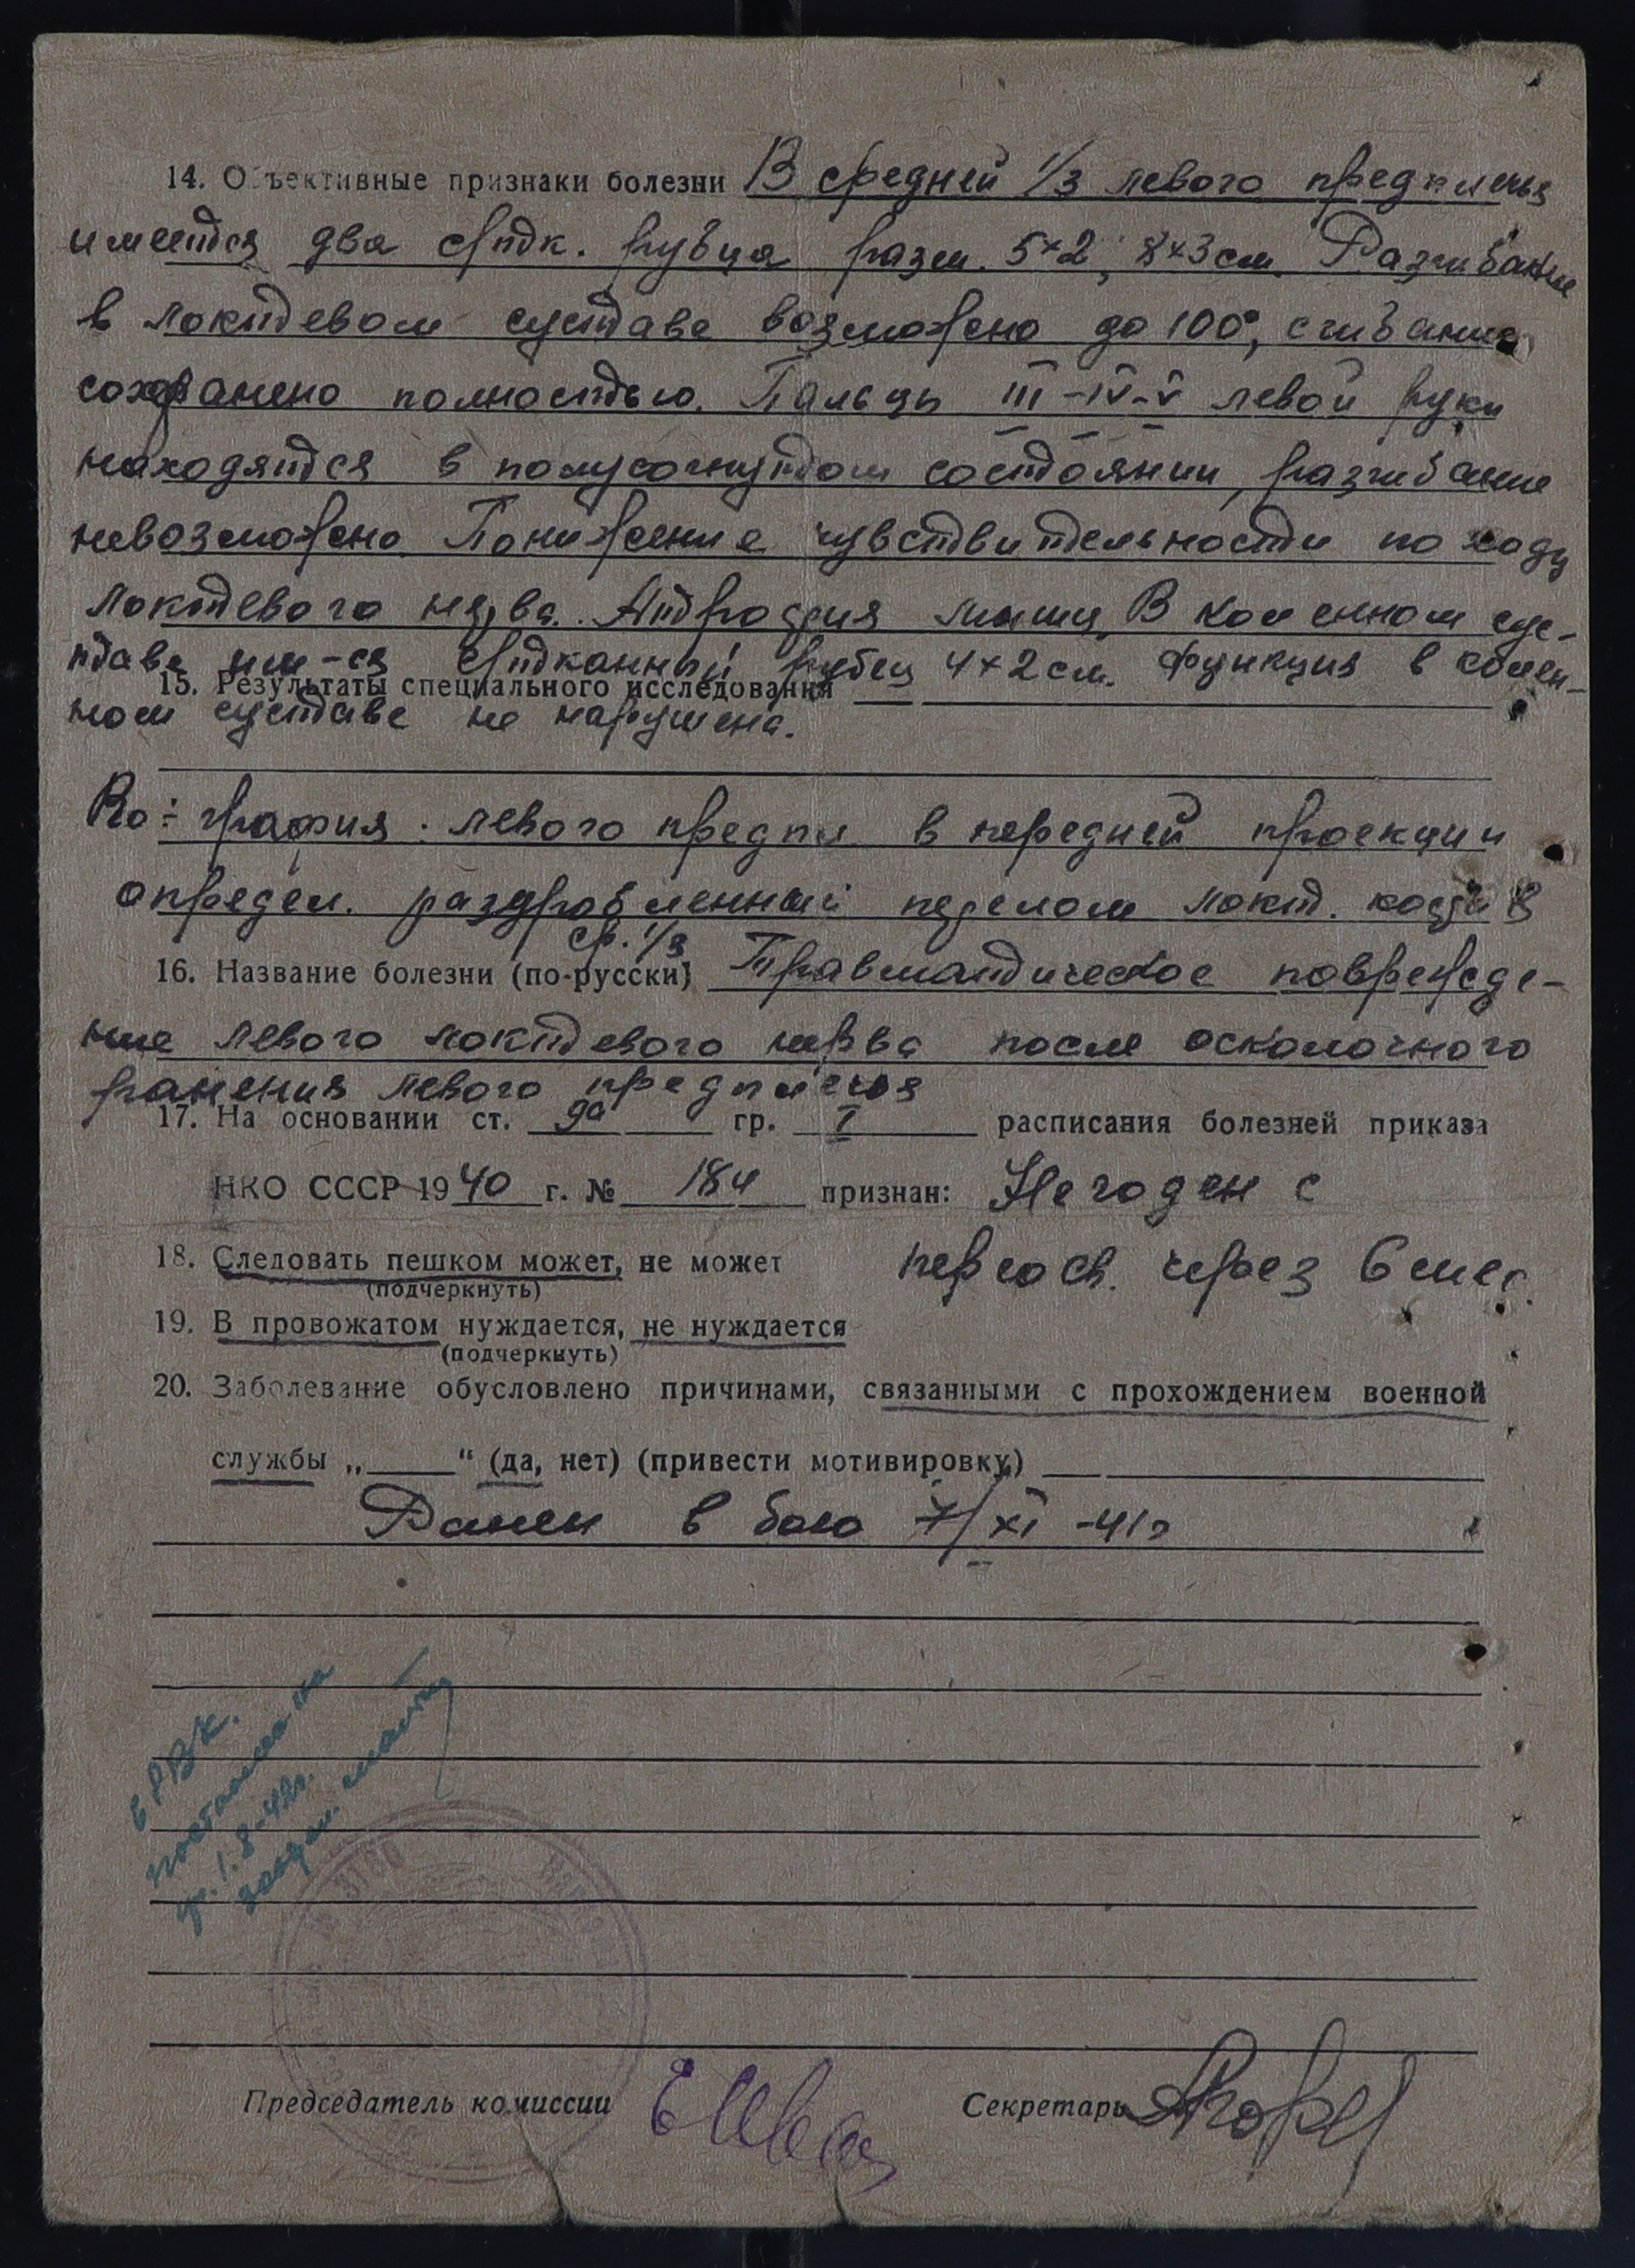 14. Объективные признаки болезни В средней 1/3 левого предплечья
имеются два спдк. рубца разм. 5×2, 8×3 см. Разгибание
в локтевом суставе возможно до 100°, сгибание
сохранено полностью. Пальцы III-IV-V левой руки
находятся в полусогнутом состоянии, разгибание
невозможно. Понижение чувствительности по ходу
локтевого нерва. Атрофия мышц. В коленном сус-
таве им-ся рубец 4×2 см. Функция в колен-
15. Результаты специального исследования
ном суставе не нарушена.
Ro-графия левого предпл. в передней проекции
определ. раздробленный перелом локт. кости в
ср. 1/3
16. Название болезни (по-русски) Травматическое поврежде-
ние левого локтевого нерва после осколочного
ранения левого предплечья
17. На основании ст. 9а гр. I расписания болезней приказа
НКО СССР 1940 г. № 184 признан: Негоден с
18. Следовать пешком может, не может переосв. через 6 мес.
(подчеркнуть)
19. В провожатом нуждается, не нуждается
(подчеркнуть)
20. Заболевание обусловлено причинами, связанными с прохождением военной
службы „ “ (да, нет) (привести мотивировку)
Ранен в бою 7/XI-41г
в РВК.
1.8-42г.
Председатель комиссии Секретарь